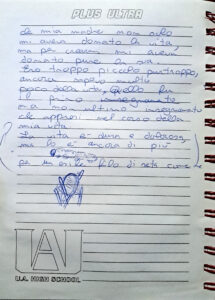 PLUS ULTRA
mia madre non solo
mi aveva donato la vita,
ma per crescere mi aveva
donato pure la sua.
Ero troppo piccolo purtroppo,
ancora
della vita, quello fu
il primo insegnamento
ma non ultimo insegnamento
che appresi nel corso della
mia vita.
La vita è dura e dolorosa,
ma lo è ancora di più
per un filo di seta
UA
U.A. HIGH SCHOOL